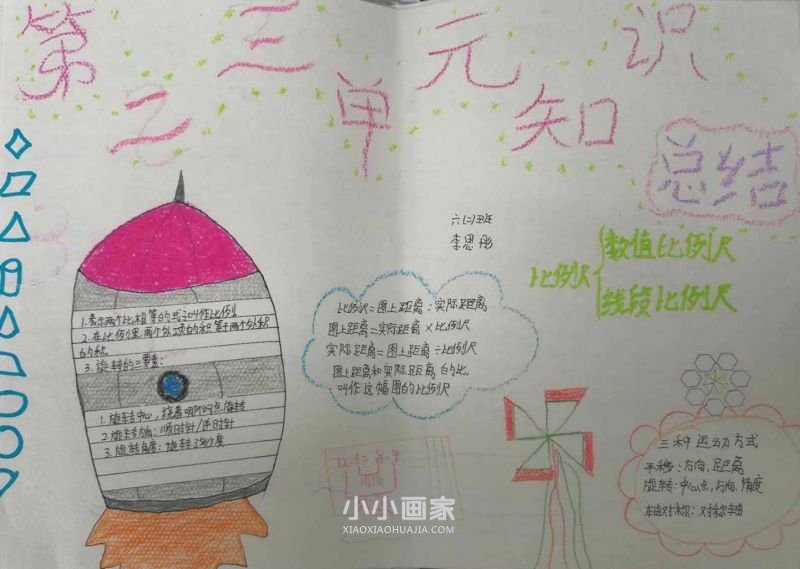 第三单元知识
总结
六(二)班
李思彤
比例尺
数值比例尺
线段比例尺
1.表示两个比相等的式子叫作比例
2.在比例里,两个外项的积等于两个外积
的积
3.旋转的三要素:
1.旋转中心,绕着哪个点旋转
2.旋转方向:顺时针/逆时针
3.旋转角度:旋转了多少度
比例尺=图上距离:实际距离
图上距离=实际距离×比例尺
实际距离=图上距离÷比例尺
图上距离和实际距离的比,
叫作这幅图的比例尺
三种运动方式
平移:方向,距离
旋转:中心点,方向,角度
轴对称:对称轴
小小画家
XIAOXIAOHUAJIA.COM